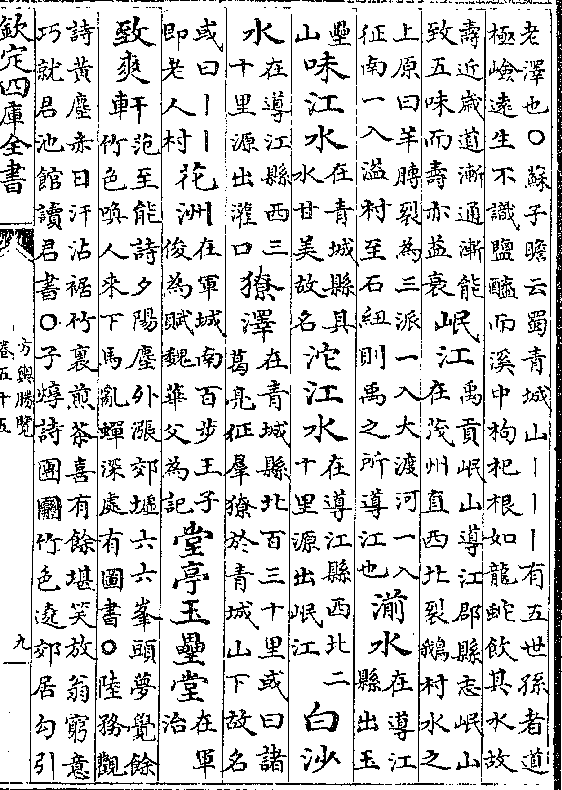 老澤也〇蘇子瞻云蜀青城山丨丨丨有五世孫者道
極嶮遠生不識鹽醯而溪中枸杞根如龍蛇飲其水故
壽近歲道漸通漸能
致五味而壽亦益衰
岷江
禹貢岷山導江郡縣志岷山
在茂州直西北裂鵝村水之
上原曰羊膊裂為三派一入大渡河一入
征南一入溢村至石紐則禹之所導江也
湔水
在導江
縣出玉
壘
山
味江水
在青城縣其
水甘美故名
沱江水
在導江縣西北二
十里源出岷江
白沙
水
在導江縣西三
十里源出灌口
獠澤
在青城縣北百三十里或曰諸
葛亮征羣獠於青城山下故名
或曰丨丨
即老人村
花洲
在軍城南百步王子
俊為賦魏華父為記
堂亭
玉壘堂
在軍
治
致爽軒
范至能詩夕陽塵外漲郊墟六六峯頭夢覺餘
竹色喚人來下馬亂蟬深處有圖書〇陸務觀
詩黄塵赤日汗沾裾竹裏煎茶喜有餘堪笑放翁窮意
巧就君池館讀君書〇子焞詩團團竹色遶郊居勾引
欽定四庫全書
方輿勝覽
卷五十五
九